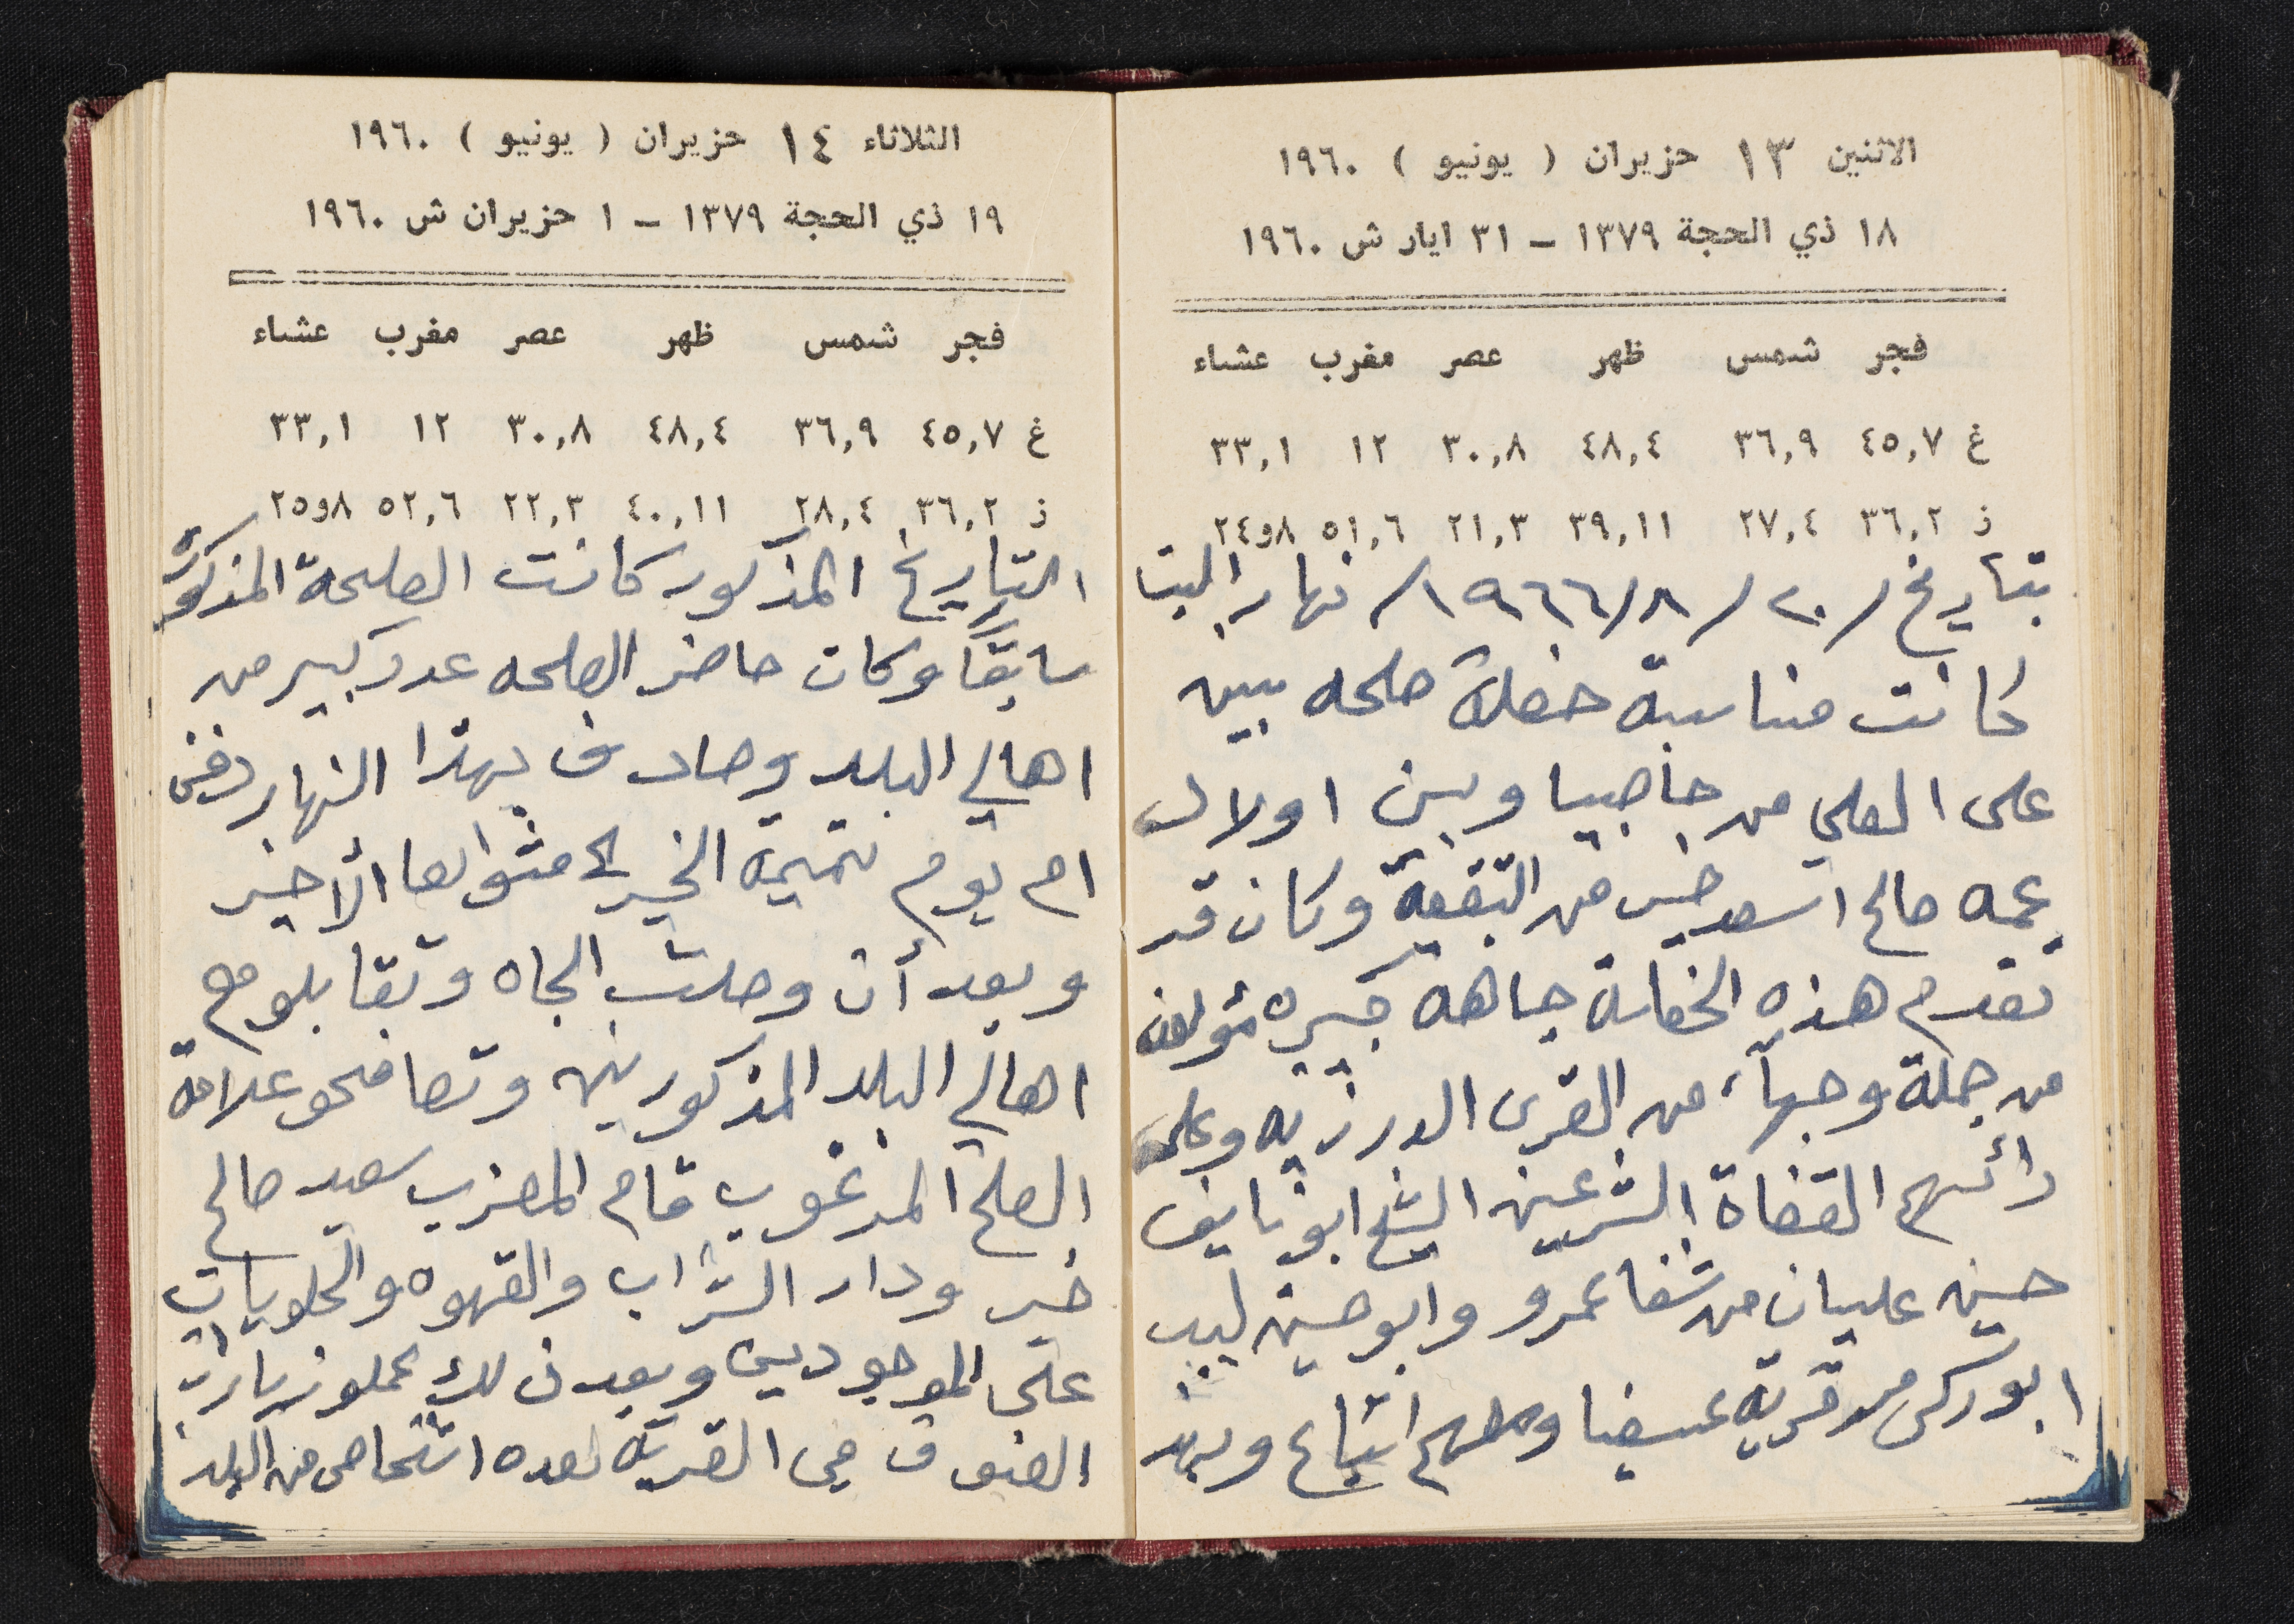 الاثنين ١٣ حزيران ( يونيو ) ١٩٦٠
١٨ ذي الحجة ١٣٧٩ – ٣١ ايار ش ١٩٦٠
فجر شمس ظهر عصر مغرب عشاء
غ ٤٥,٧ ٣٦,٩ ٤٨,٤ ٣٠,٨ ١٢ ٣٣,١
ز ٣٦,٢ ٢٧,٤ ٣٩,١١ ٢١,٣ ٥١,٦ ٨و٢٤
بتاريخ /٢٠/٨/١٩٦٦/ نهار
كانت مناسبة حفلة صلحه بين
على العلي من جاصيا وبين اولاد
عمه صالح اسعد خير من البقيعة وكان قد
تقدم هذه الحفلة جاهه كبيره مؤلفه
من جملة وجهآء من القرى الدرزيه وعلى
رأسهم القضاة الشرعين الشيخ ابو نايف
حسين عليان من شفاعمرو وابو حسين لبيب
ابو ركن من قرية عسفيا ومعهم اتباع وبهذ
الثلاثاء ١٤ حزيران ( يونيو ) ١٩٦٠
١٩ ذي الحجة ١٣٧٩ – ١ حزيران ش ١٩٦٠
فجر شمس ظهر عصر مغرب عشاء
غ ٤٥,٧ ٣٦,٩ ٤٨,٤ ٣٠,٨ ١٢ ٣٣,١
ز ٣٦,٢ ٢٨,٤ ٤٠,١١ ٢٢,٣ ٥٢,٦ ٨و٢٥
التاريخ المذكور كانت الصلحة المذكورة
سابقاً وكان حاضر الصلحه عدد كبير من
اهالي البلد وصادف بهذا النهار دفن
ام يوم تتميمة الخير لمثواها الأخير
وبعد أن وصلت الجاه وتقابلو مع
اهالي البلد المذكورين وتصافحو علامة
الصلح المرغوب قام المعزب سعيد صالح
خير ودار الشراب والقهوه والحلويات
على الموجودين وبعد ذلك عملو زيارات
الضيوف في القرية لعده اشخاص من البلد